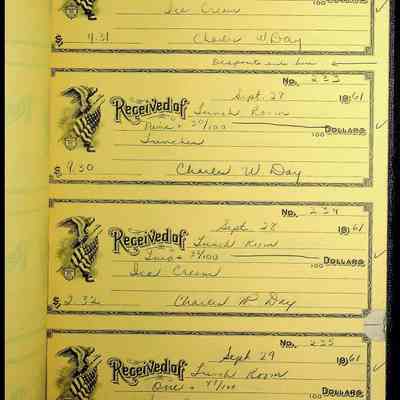 100 Dollars
Ice Cream
$ 4.31 Charles W. Day
Deposits and
No. 233
Sept. 28 1961
Received of Lunch Room
Nine + 30/100 100 Dollars
Lunches
$ 9.30 Charles W. Day
No. 234
Sept. 28 1961
Received of Lunch Room
Two + 32/100 100 Dollars
Ice Cream
$ 2.32 Charles W. Day
No. 235
Sept 29 1961
Received of Lunch Room
One + /100 100 Dollars